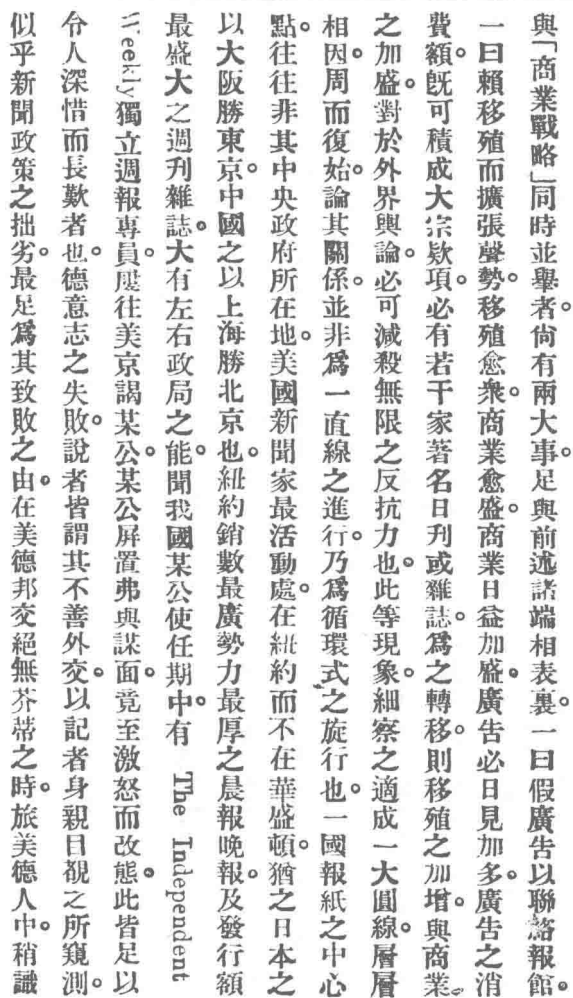 與「商業戰略」同時並舉者。尙有兩大事。足與前述諸端相表裏。一曰假廣告以聯絡報館。
一曰賴移殖而擴張聲勢。移殖愈衆。商業愈盛。商業日益加盛。廣告必日見加多。廣告之消
費額。旣可積成大宗欵項。必有若干家著名日刊或雜誌。爲之轉移。則移殖之加增。與商業
之加盛。對於外界輿論。必可減殺無限之反抗力也。此等現象。細察之適成一大圓線。層層
相因。周而復始。論其關係。並非爲一直線之進行。乃爲循環式之旋行也。一國報紙之中心
點。往往非其中央政府所在地。美國新聞家最活動處。在紐約而不在華盛頓。猶之日本之
以大阪勝東京。中國之以上海勝北京也。紐約銷數最廣勢力最厚之晨報晚報。及發行額
最盛大之週刊雜誌。大有左右政局之能。聞我國某公使任期中。有 The Independent
Weekly 獨立週報專員。屢往美京謁某公。某公屏置弗與謀面。竟至激怒而改態。此皆足以
令人深惜而長歎者也。德意志之失敗。說者皆謂其不善外交。以記者身親目覩之所窺測。
似乎新聞政策之拙劣。最足爲其致敗之由。在美德邦交絕無芥蒂之時。旅美德人中。稍識